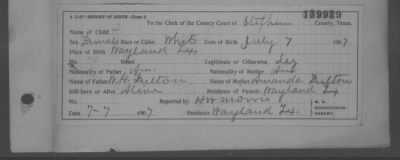 A 1147—REPORT OF BIRTH—Class 5
139929
To the Clerk of the County Court of Stephens County, Texas.
Name of Child -
Sex Female Race or Color White Date of Birth July 7 1907
Place of Birth Wayland Tex
No. Street. Legitimate or Otherwise Leg
Nationality of Father Am Nationality of Mother Am
Name of Father Fulton Name of Mother Amanda Fulton
Still-born or Alive Alive Residence of Parents Wayland Tex
Reported by HW Morris
Date 7-7 1907 Residence Wayland Tex.
M. D.
PARENT.